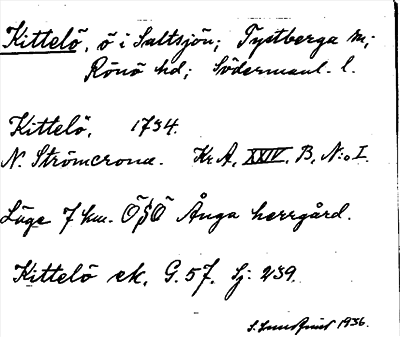 Kittelö, ö i Saltsjön; Tystberga sn;
Rönö hd; Södermanl. l.
Kittelö, 1734.
N. Strömcrona. Kr A, XXIV. B, N:o I.
Läge 7 km. ÖSÖ Ånga herrgård.
Kittelö ek. G. 57. Sj: 239.
1936.